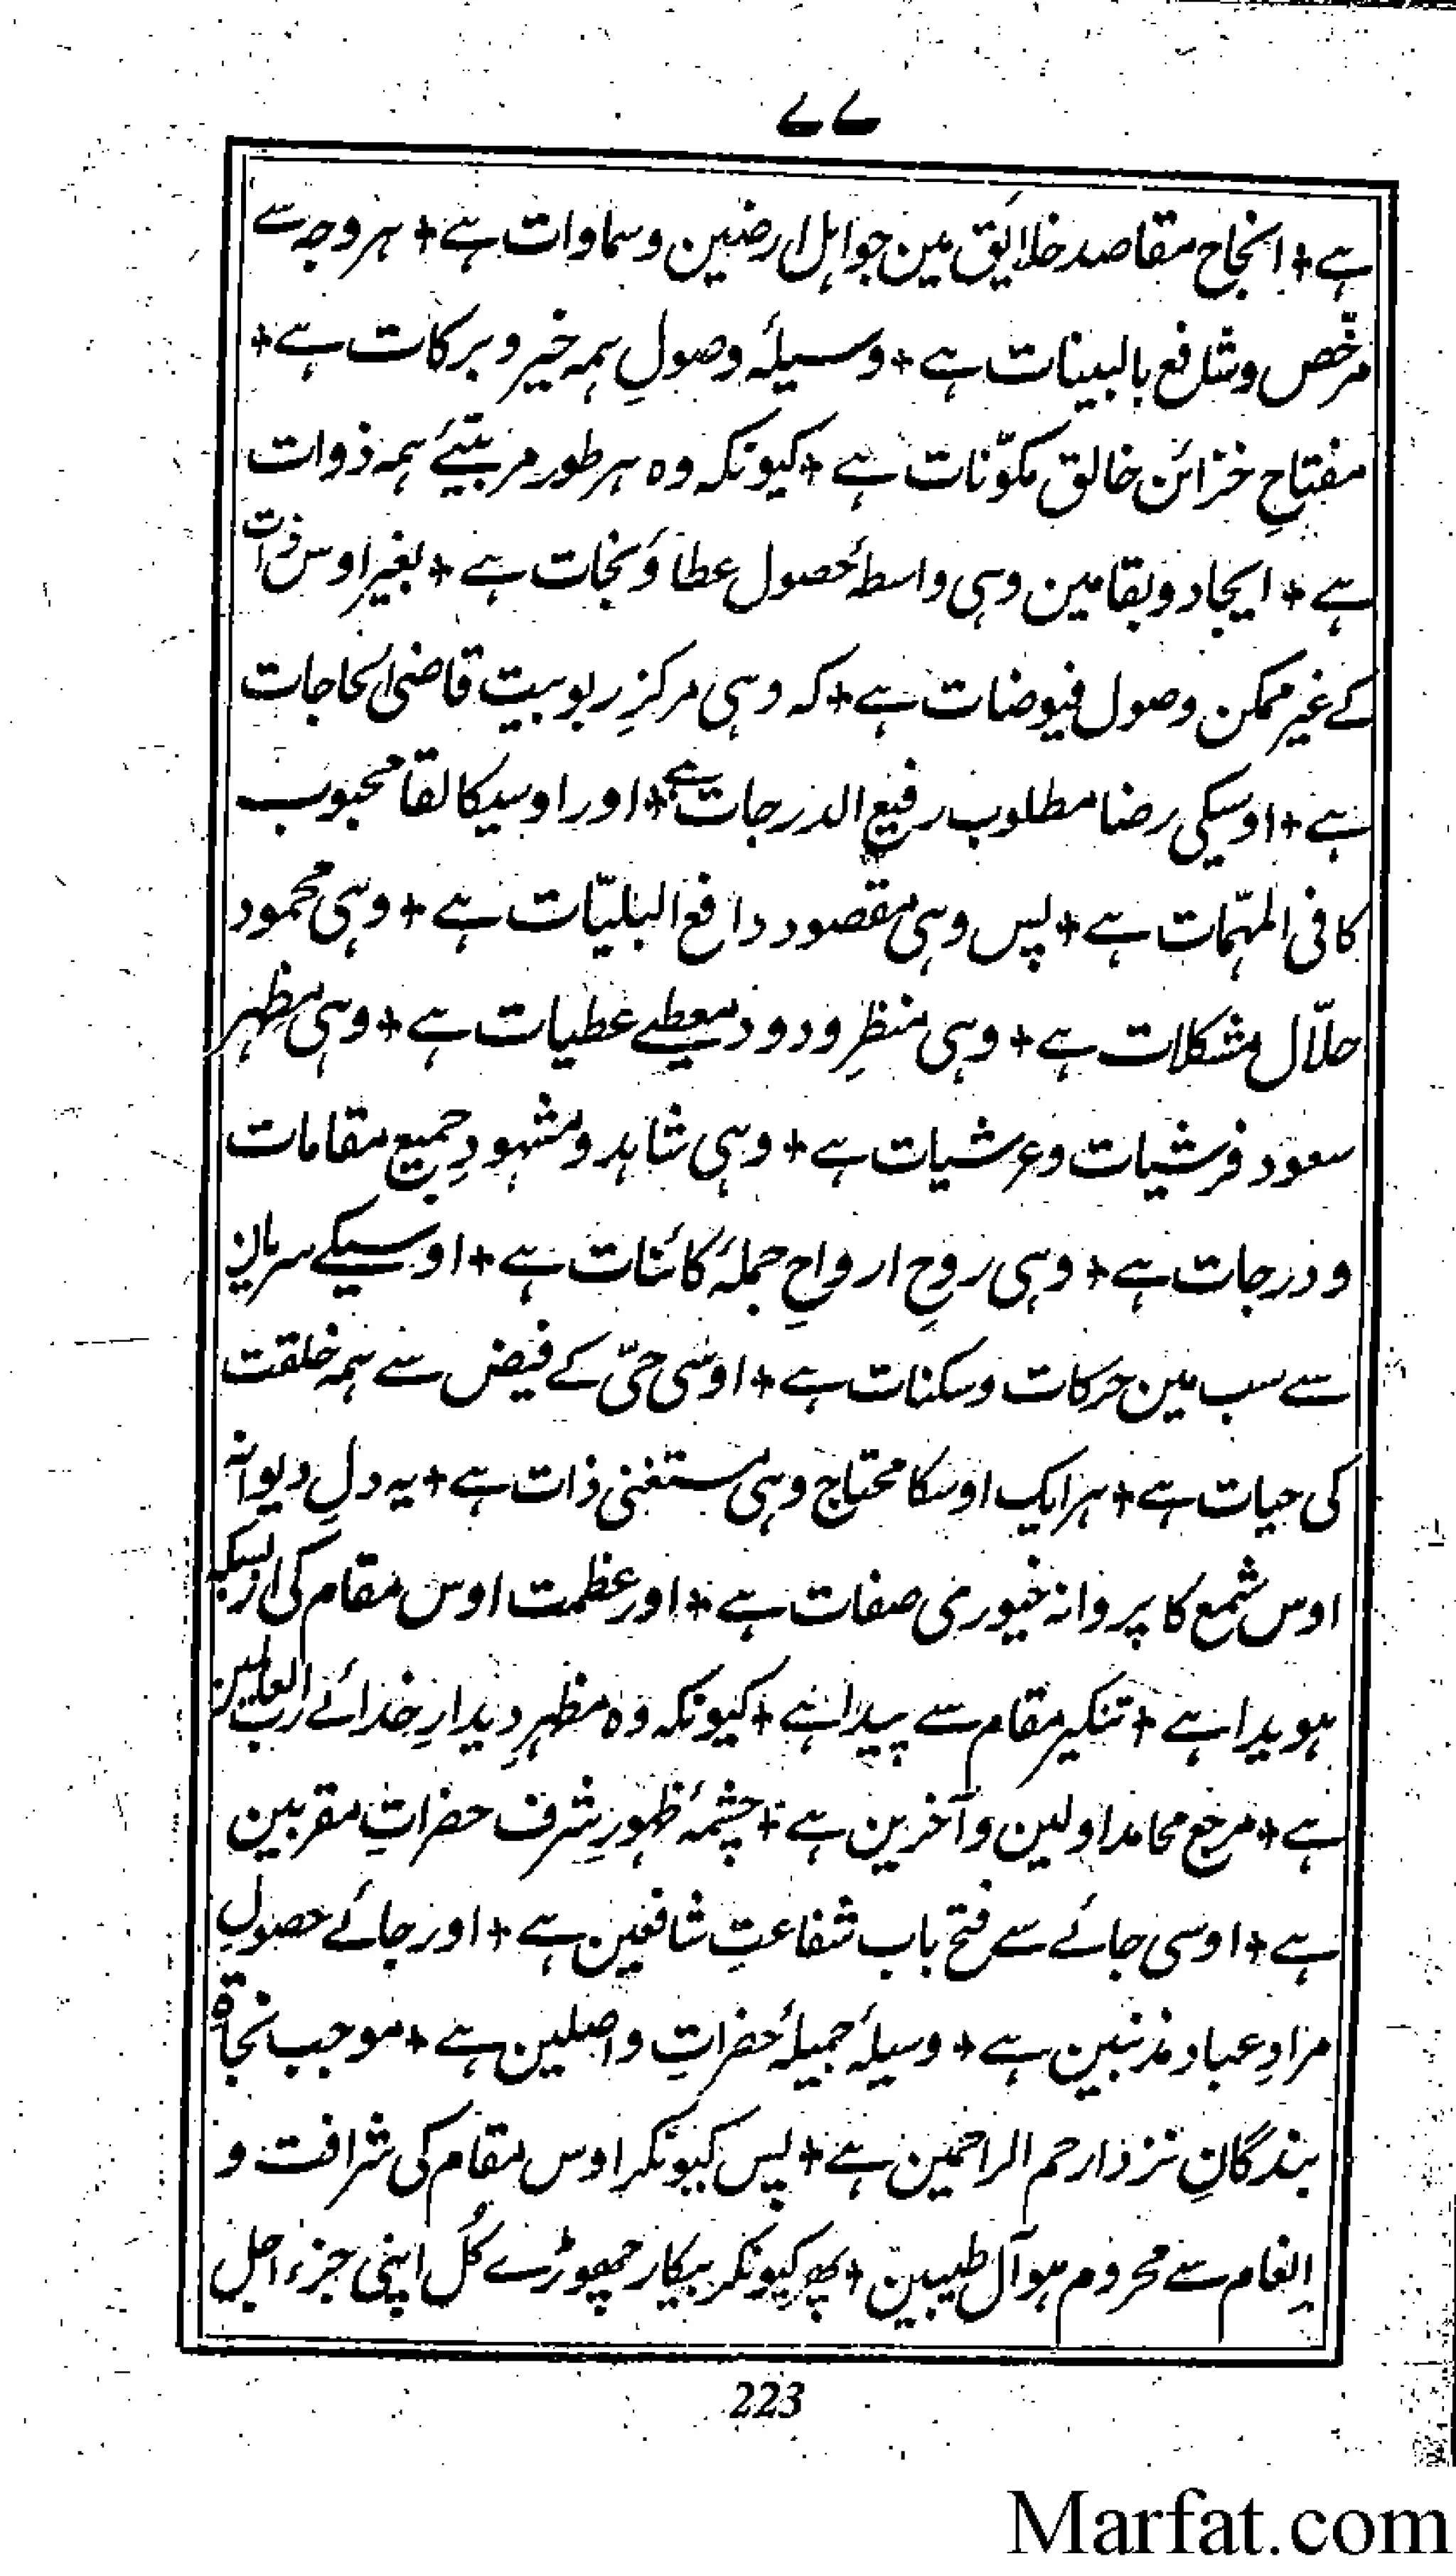 ۷۷
ہے + انجاح مقاصد خلایق مین جو اہل ارضین و سماوات ہے + ہر وجہ سے
مرخّص و شافع بالبینات ہے + وسیلۂ وصولِ ہمہ خیر و برکات ہے +
مفتاحِ خزائن خالق مکوّنات ہے + کیونکہ وہ ہر طور مربیّئے ہمہ ذوات
ہے + ایجاد و بقا مین وہی واسطۂ حصول عطاؤ نجات ہے + بغیر اوس ذات
کے غیر ممکن وصول فیوضات ہے + کہ وہی مرکزِ ربوبیت قاضی الحاجات
ہے + اوسیکی رضا مطلوب رفیع الدرجات ہے + اور اوسیکا لقا محبوب
کافی المہمّات ہے + پس وہی مقصود دافع البلیّات ہے + وہی محمود
حلّال مشکلات ہے + وہی منظرِ ودود معطے عطیات ہے + وہی مظہر
سعود فرشیات و عرشیات ہے + وہی شاہد و مشہودِ جمیع مقامات
و درجات ہے + وہی روحِ ارواحِ جملۂ کائنات ہے + اوسیکے سریان
سے سب مین حرکات و سکنات ہے + اوسی حیّ کے فیض سے ہمہ خلقت
کی حیات ہے + ہر ایک اوسکا محتاج وہی مستغنی ذات ہے + یہ دلِ دیوانہ
اوس شمع کا پروانہ خیوری صفات ہے + اور عظمت اوس مقام کی ازبسکہ
ہویدا ہے + تنکیر مقام سے پیدا ہے + کیونکہ وہ مظہرِ دیدارِ خدائے رب العالمین
ہے + مرجع محامد اولین و آخرین ہے + چشمۂ ظہورِ شرف حضراتِ مقربین
ہے + اوسی جائے سے فتح باب شفاعتِ شافعین ہے + اور جائے حصولِ
مرادِ عباد مذنبین ہے + وسیلۂ جمیلۂ حضراتِ واصلین ہے + موجب نجاۃ
بندگانِ نزد ارحم الراحمین ہے + پس کیونکر اوس مقام کی شرافت و
اِنعام سے محروم ہو آل طیبین + پھر کیونکر بیکار چھوڑے کُل اپنی جزء اصل
223
Marfat.com